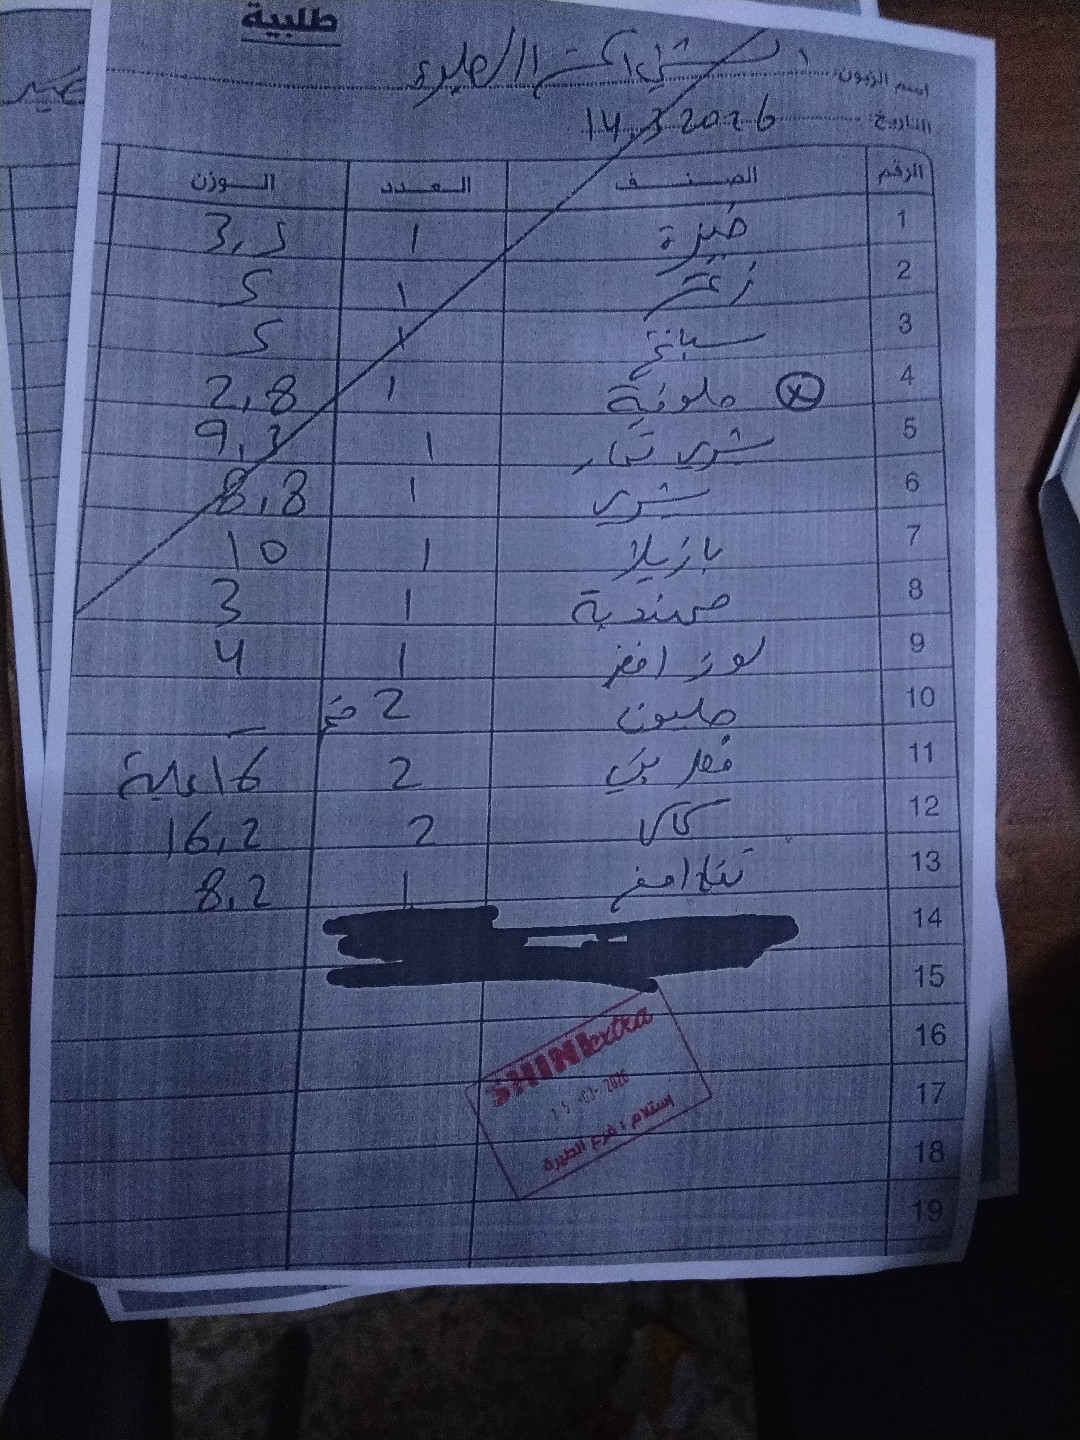 طلبية
اسم الزبون: شني اكسترا الطيرة
التاريخ: 14.3.2026
الرقم الصنف العدد الوزن
1 خبيزة 1 3,5
2 زعتر 1 5
3 سبانخ 1 5
4 ملوخية 1 2,8
5 شري تمار 1 9,3
6 شري 1 8,8
7 بازيلا 1 10
8 هندبة 1 3
9 لوز اخضر 1 4
10 2
11 فطر 2 16 علبة
12 كاكا 2 16,2
13 تفاح اصفر 1 8,2
14
15
16
17
18
19
SHINI extra
15 -03- 2026
إستلام: فرع الطيرة